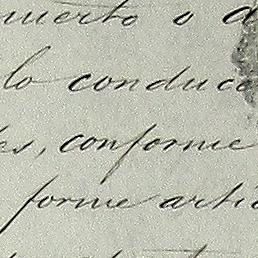 muerto o a
lo conduce
es, conforme
forme arti